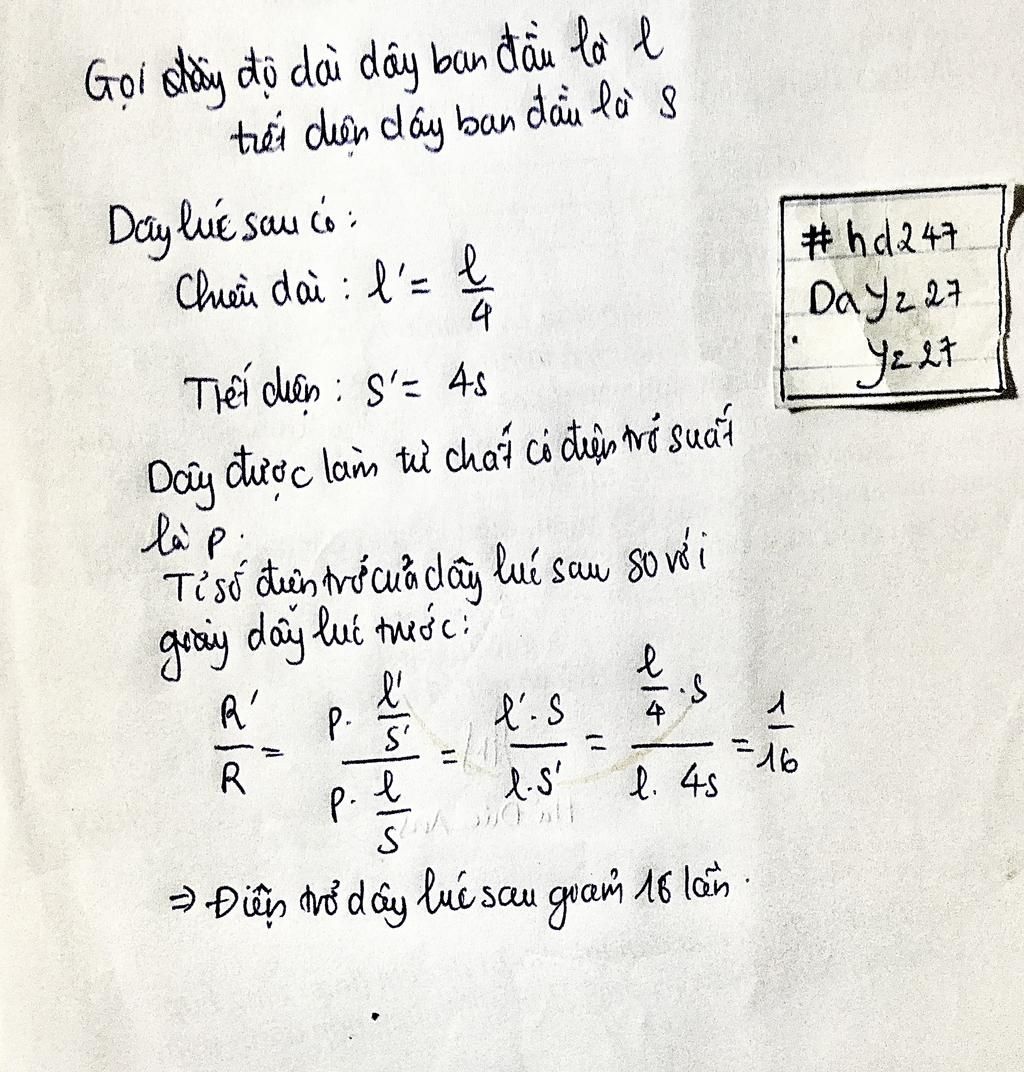 Gọi độ dài dây ban đầu là l
tiết diện dây ban đầu là S
Dây lúc sau có:
Chiều dài : l' = l/4
Tiết diện : S' = 4S
#hd247
Dayz27
yz27
Dây được làm từ chất có điện trở suất
là ρ.
Tỉ số điện trở của dây lúc sau so với
dây lúc trước:
R'/R = (ρ. l'/S')/(ρ. l/S) = (l'.S)/(l.S') = (l/4 .S)/(l. 4S) = 1/16
⇒ Điện trở dây lúc sau giảm 16 lần.